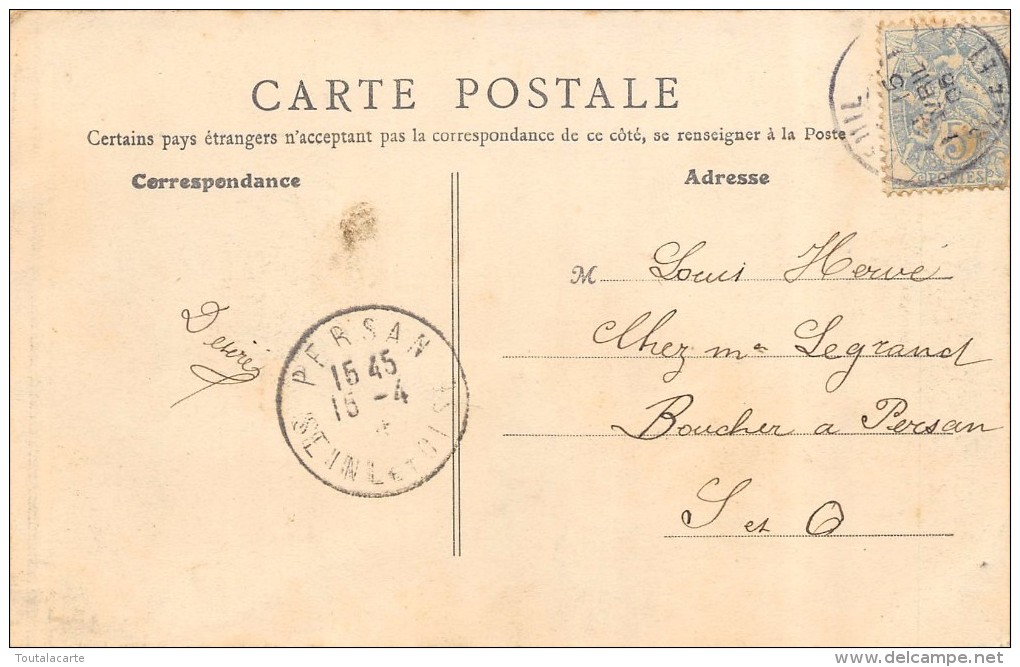 CARTE POSTALE
Certains pays étrangers n'acceptant pas la correspondance de ce côté, se renseigner à la Poste
Correspondance
Adresse
M Louis Hervé
Chez mr Legrand
Boucher a Persan
S et O
Desiré
PERSAN
15 45
15 -4
SEINE ET OISE
AVRIL
05
5
POSTES
Toutalacarte
www.delcampe.net